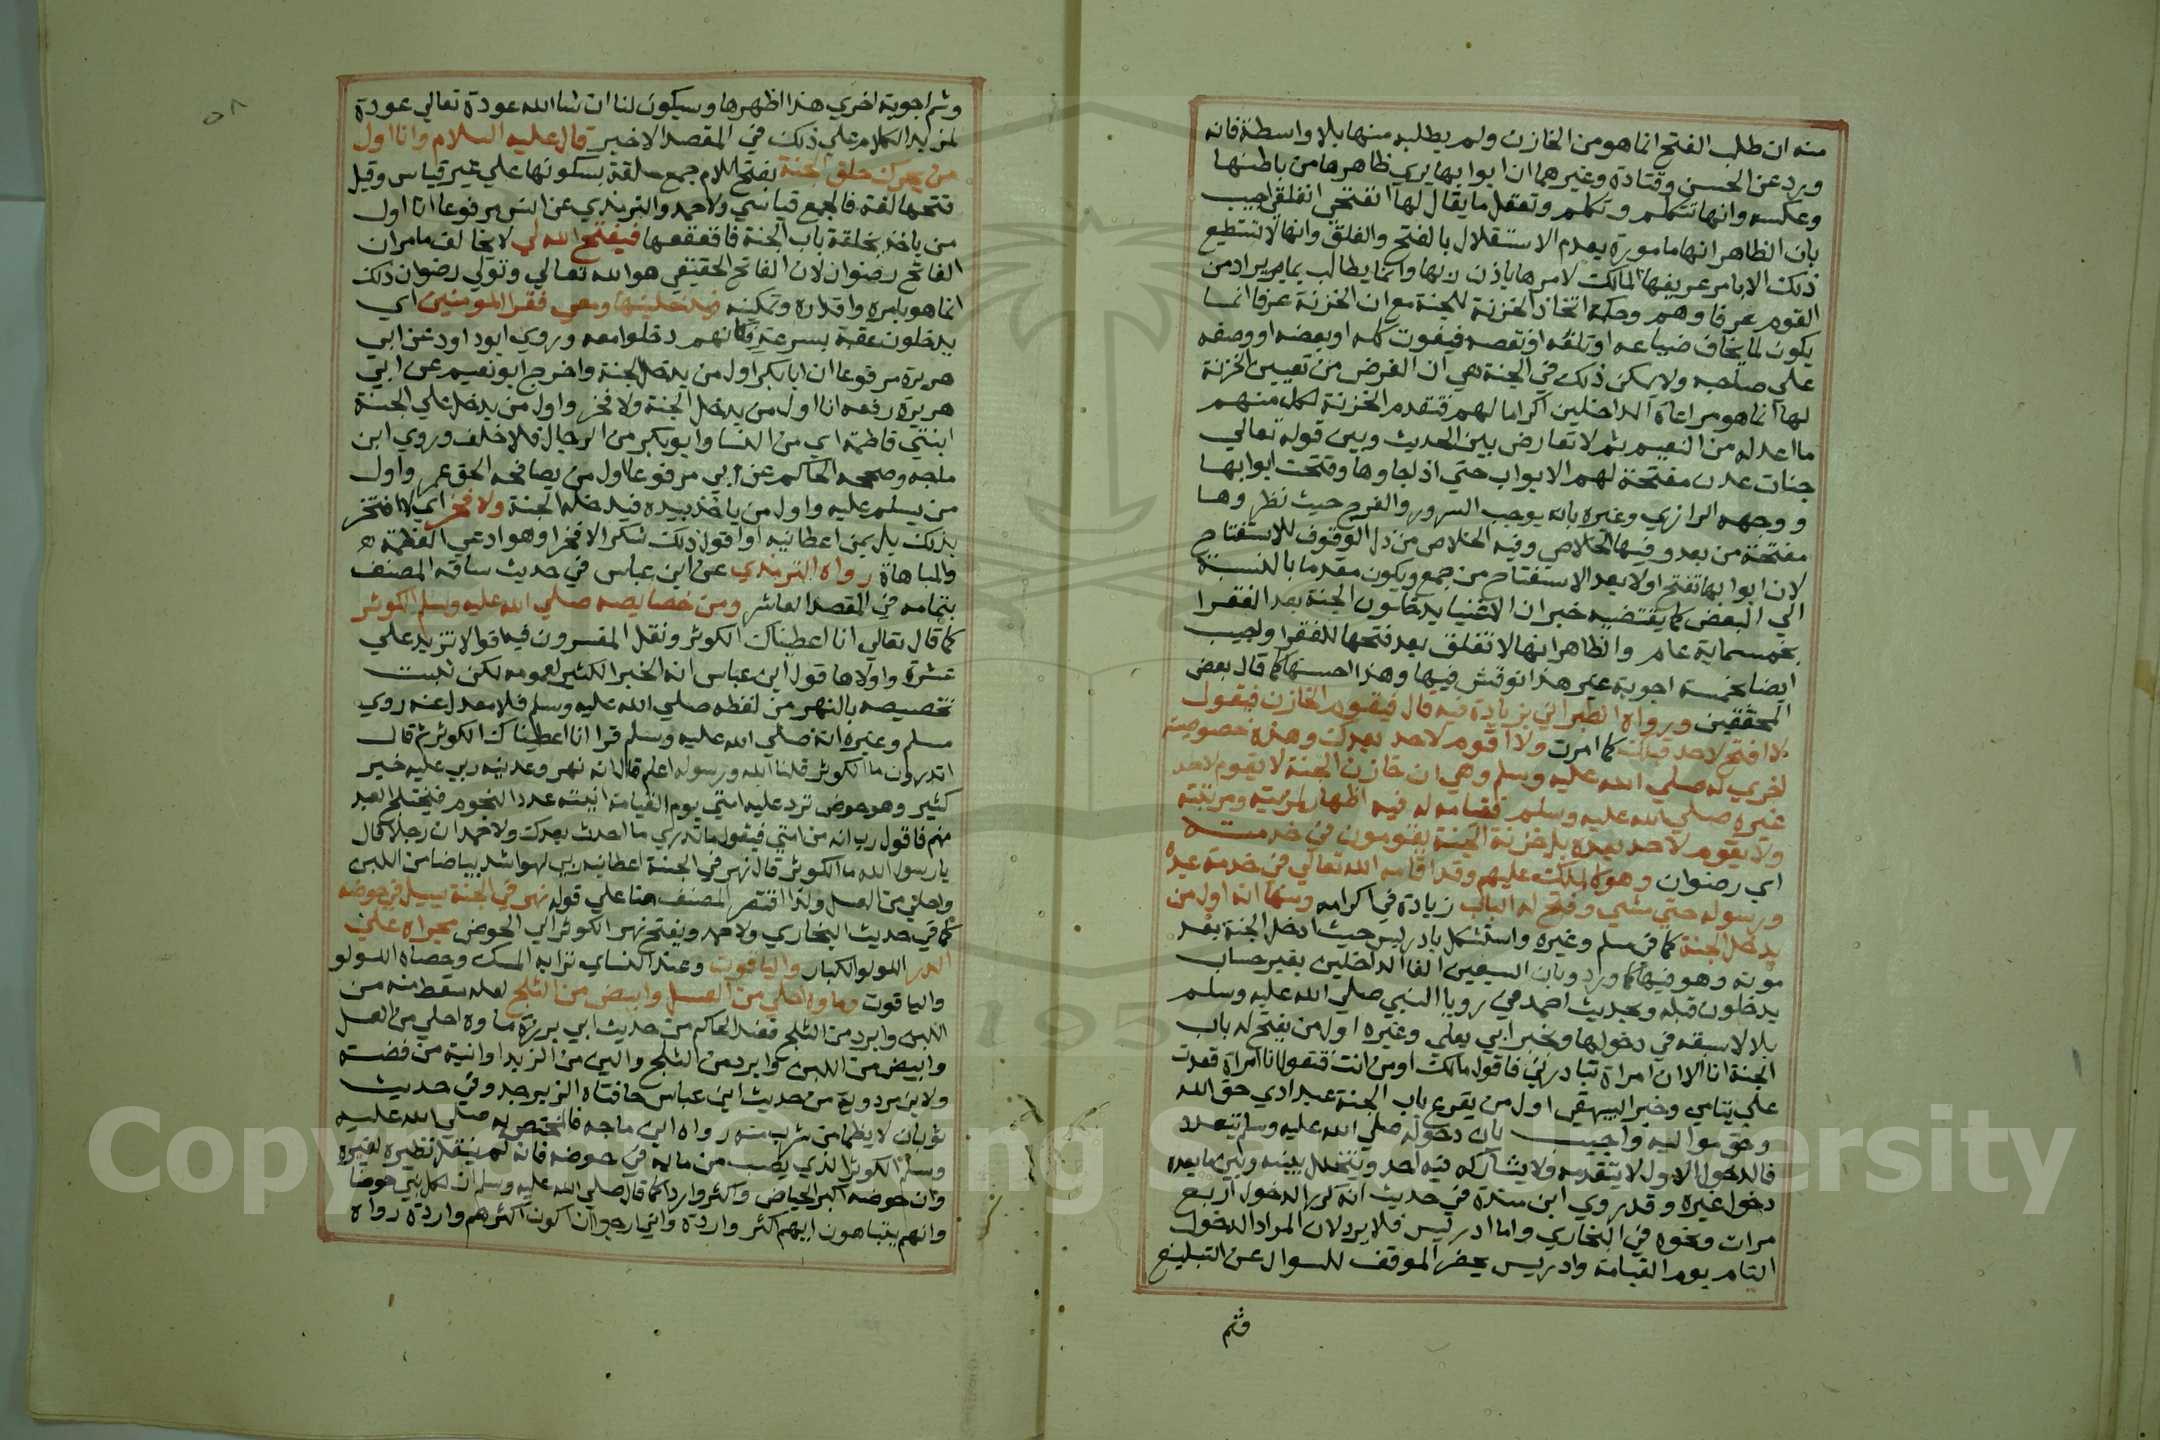 منه ان طلب الفتح انما هو من الخازن ولم يطلبه منها بلا واسطة فانه
ورد عن الحسن وقتادة وغيرهما ان ابوابها يري ظاهرها من باطنها
وعكسه وانها تتكلم وتكلم وتعقل ما يقال لها انفتحي انغلقي اجيب
بان الظاهر انها مامورة بعدم الاستقلال بالفتح والغلق وانها لا تستطيع
ذلك الا بامر عريفها المالك لامرها باذن ربها وانما يطالب بما يراد من
القوم عرفاوهم وحكمة اتخاذ الخزنة للجنة مع ان الخزنة عرفا انما
يكون لما يخاف ضياعه او تلفه او نقصه فيفوت كله او بعضه او وصفه
علي صاحبه ولا يمكن ذلك في الجنة هي ان الغرض من تعيين الخزنة
لها انما هو مراعاة الداخلين اكراما لهم فتقدم الخزنة لكل منهم
ما اعد له من النعيم ثم لا تعارض بين الحديث وبين قوله تعالي
جنات عدن مفتحة لهم الابواب حتي اذا جاوها وفتحت ابوابها
ووجهه الرازي وغيره بانه يوجب السرور والفرح حيث نظروها
مفتحة من بعد وفيها الخلاص وفيه الخلاص من ذل الوقوف للاستفتاح
لان ابوابها تفتح اولا بعد الاستفتاح من جمع ويكون مقدما بالنسبة
الي البعض كما يقتضيه خبر ان الاغنيا يدخلون الجنة بعد الفقرا
بخمسماية عام والظاهر انها لا تغلق بعد فتحها للفقرا واجيب
ايضا بخمسة اجوبة غير هذا نوقش فيها وهذا احسنها كما قال بعض
المحققين ورواه الطبراني بزيادة فيه قال فيقوم الخازن فيقول
لا افتح لاحد قبلك كما امرت ولا اقوم لاحد بعدك وهذه خصوصية
اخري له صلي الله عليه وسلم وهي ان خازن الجنة لا يقوم لاحد
غيره صلي الله عليه وسلم فقيامه له فيه اظهار لمزيته ومرتبته
ولا يقوم لاحد بعده بل خزنة الجنة يقومون في خدمته
اي رضوان وهو كالملك عليهم وقد اقامه الله تعالي في خدمة عبده
ورسوله حتي مشي وفتح له الباب زيادة في اكرامه ومنها انه اول من
يدخل الجنة كما في مسلم وغيره واستشكل بادريس حيث ادخل الجنة بعد
موته وهو فيها كما ورد وبان السبعين الفا الداخلين بغير حساب
يدخلون قبله وبحديث احمد في رويا النبي صلي الله عليه وسلم
بلالا سبقه في دخولها وبخبر ابي يعلي وغيره اول من يفتح له باب
الجنة انا الا ان امراة تبادرني فاقول مالك او من انت فتقول انا امراة قعدت
علي يتامي وخبر البيهقي اول من يقرع باب الجنة عبد ادي حق الله
وحق مواليه واجيب بان دخوله صلي الله عليه وسلم يتعدد
فالدخول الاول لا يتقدمه ولا يشاركه فيه احد ويتخلل بينه وبين ما بعده
دخول غيره وقد روي ابن مندة في حديث انه كرر الدخول اربع
مرات ونحوه في البخاري واما ادريس فلا يرد لان المراد الدخول
التام يوم القيامة وادريس يحضر الموقف للسوال عن التبليغ
وثم
٥٨
وثم اجوبة اخري هذا اظهرها وسيكون لنا ان شا الله عودة تعالي عودة
لمزيد الكلام علي ذلك في المقصد الاخير قال عليه السلام وانا اول
من يحرك حلق الجنة بفتح اللام جمع حلقة بسكونها علي غير قياس وقيل
فتحها لغة فالجمع قياسي ولاحمد والترمذي عن انس مرفوعا انا اول
من ياخذ بحلقة باب الجنة فاقعقعها فيفتح الله لي لا يخالف ما مر ان
الفاتح رضوان لان الفاتح الحقيقي هو الله تعالي وتولي رضوان ذلك
انما هو بامره واقداره وتمكينه فيدخلنيها ومعي فقرا المومنين اي
يدخلون عقبه بسرعة فكانهم دخلوا معه وروي ابو داود عن ابي
هريرة مرفوعا ان ابا بكر اول من يدخل الجنة واخرج ابو نعيم عن ابي
هريرة رفعه انا اول من يدخل الجنة ولا فخر واول من يدخل علي الجنة
ابنتي فاطمة اي من النسا وابو بكر من الرجال فلا خلف وروي ابن
ماجه وصححه الحاكم عن ابي مرفوعا اول من يصافحه الحق عمر واول
من يسلم عليه واول من ياخذ بيده فيدخله الجنة ولا فخر اي لا افتخر
بذلك بل بمن اعطانيه او اقول ذلك شكرا لا فخرا وهو ادعي العظمة
والمباهاة رواه الترمذي عن ابن عباس في حديث ساقه المصنف
بتمامه في المقصد العاشر ومن خصايصه صلي الله عليه وسلم الكوثر
كما قال تعالي انا اعطيناك الكوثر ونقل المفسرون فيه اقوالا تزيد علي
عشرة واولاها قول ابن عباس انه الخير الكثير لعمومه لكن ثبت
تخصيصه بالنهر من لفظه صلي الله عليه وسلم فلا معدل عنه روي
مسلم وغيره انه صلي الله عليه وسلم قرا انا اعطيناك الكوثر ثم قال
اتدرون ما الكوثر قلنا الله ورسوله اعلم قال انه نهر وعدنيه ربي عليه خير
كثير وهو حوض ترد عليه امتي يوم القيامة انيته عدد النجوم فيختلج العبد
منهم فاقول رب انه من امتي فيقول ما تدري ما احدث بعدك ولاحمد ان رجلا قال
يا رسول الله ما الكوثر قال نهر في الجنة اعطانيه ربي لهو اشد بياضا من اللبن
واحلي من العسل ولذا اقتصر المصنف هنا علي قوله نهر في الجنة يسيل في حوضه
كما في حديث البخاري ولاحمد ويفتح نهر الكوثر الي الحوض مجراه علي
الدر اللولو الكبار والياقوت وعند النساي ترابه المسك وحصاه اللولو
والياقوت وماوه احلي من العسل وابيض من الثلج لعله سقط منه من
اللبن وابرد من الثلج فعند الحاكم من حديث ابي برزة ماوه احلي من العسل
وابيض من اللبن وابرد من الثلج والين من الزبد اوانيه من فضة
ولابن مردويه من حديث ابن عباس حافتاه الزبرجد وفي حديث
ثوبان لا يظما من شرب منه رواه ابن ماجه فالمختص به صلي الله عليه
وسلم الكوثر الذي يصب من مايه في حوضه فانه لم ينقل نظيره لغيره
وان حوضه اكبر الحياض واكثر واردا كما قال صلي الله عليه وسلم ان لكل نبي حوضا
وانهم يتباهون ايهم اكثر واردة واني ارجو ان اكون اكثرهم واردة رواه
1957